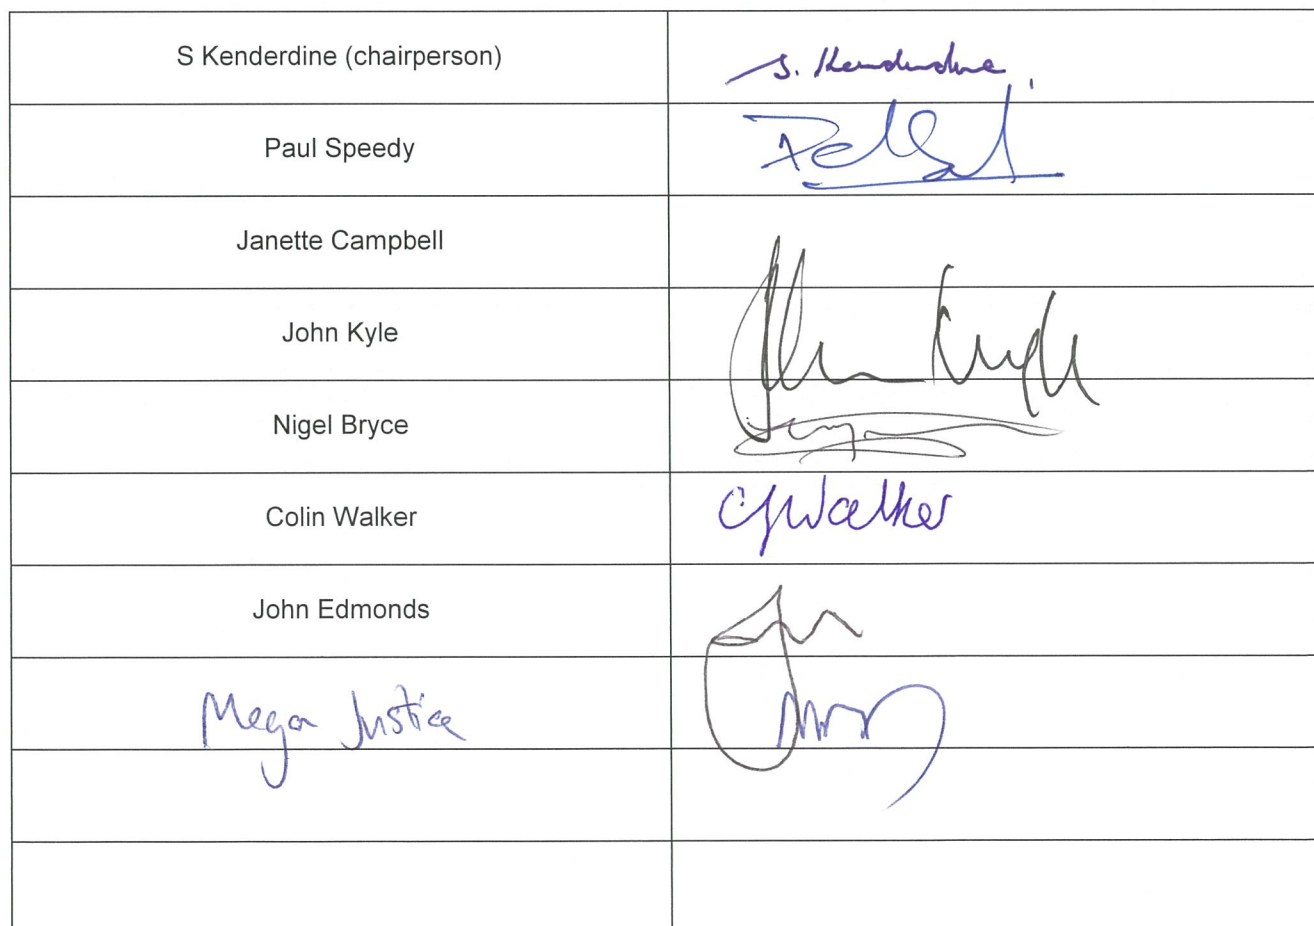 S Kenderdine (chairperson)
S. Kenderdine
Paul Speedy
Janette Campbell
John Kyle
John Kyle
Nigel Bryce
Colin Walker
CJWalker
John Edmonds
Megan Justice